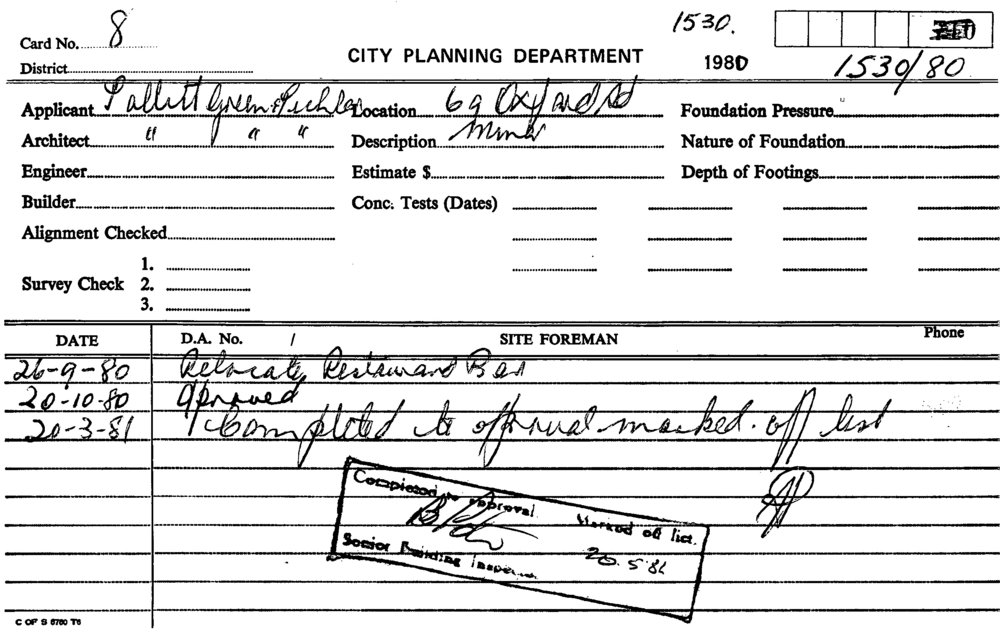 1530.
Card No. 8
CITY PLANNING DEPARTMENT 1980 1530/80
District
Applicant Pollitt Green & Pichler Location 69 Oxford Rd Foundation Pressure
Architect " " " Description Minor Nature of Foundation
Engineer Estimate $ Depth of Footings
Builder Conc. Tests (Dates)
Alignment Checked
1.
Survey Check 2.
3.
DATE D.A. No. / SITE FOREMAN Phone
26-9-80 Relocate Restaurant Bar
20-10-80 Approved
20-3-81 Completed to approval marked off list
Completed to approval. Marked off list.
20.5.81
Senior Building Inspector
C OF S 6760 T6